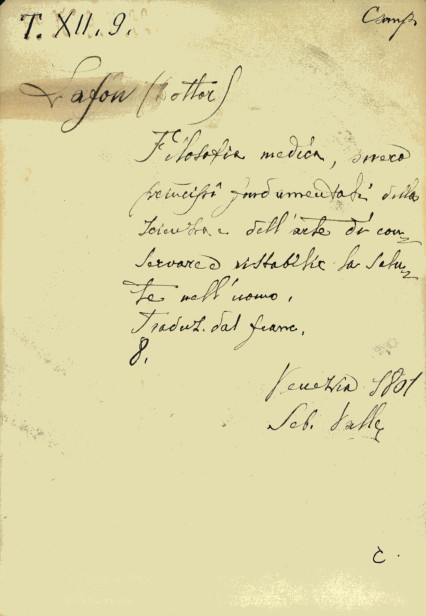 T. XII. 9.
Camp
Lafon (Dottor)
Filosofia medica, ovvero
principii fundamentali della
scienza e dell'arte di con
servare o ristabilir la salu
te nell'uomo.
Traduz. dal franc.
8.
Venezia 1801
Seb. Valle
C.